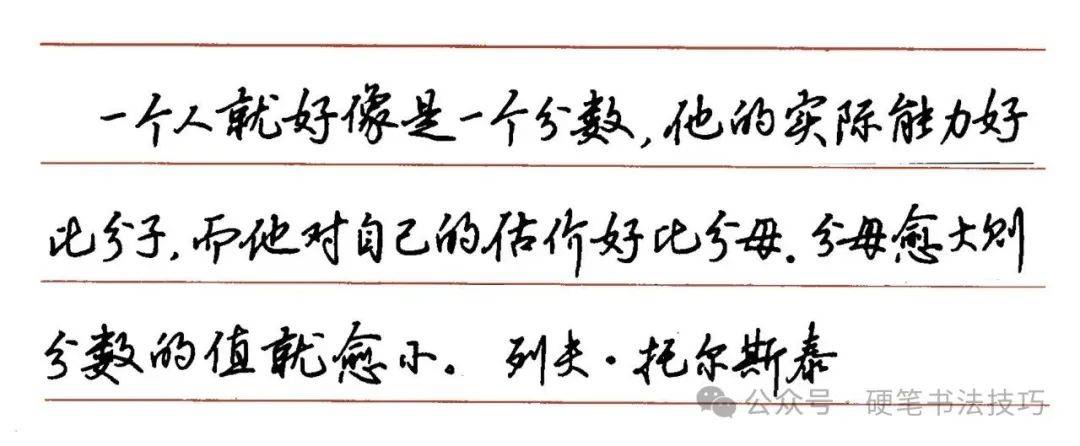 一个人就好像是一个分数,他的实际能力好
比分子,而他对自己的估价好比分母。分母愈大则
分数的值就愈小。 列夫·托尔斯泰
公众号·硬笔书法技巧